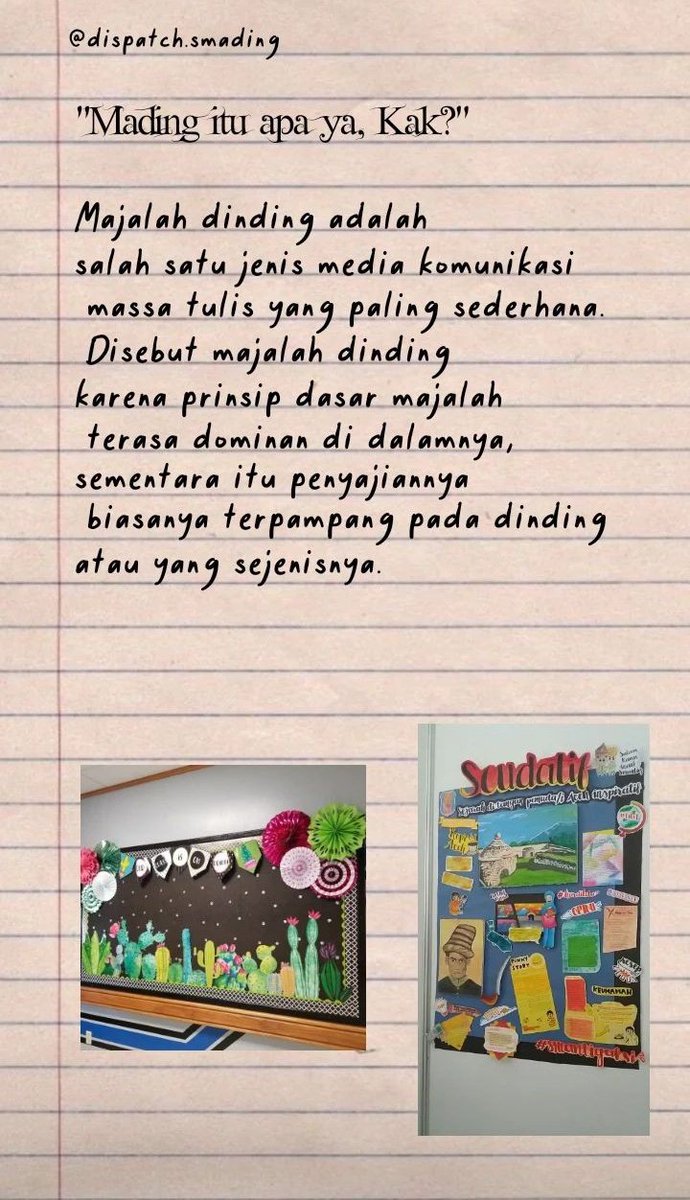 @dispatch.smading
"Mading itu apa ya, Kak?"
Majalah dinding adalah
salah satu jenis media komunikasi
massa tulis yang paling sederhana.
Disebut majalah dinding
karena prinsip dasar majalah
terasa dominan di dalamnya,
sementara itu penyajiannya
biasanya terpampang pada dinding
atau yang sejenisnya.
Seudatif
Aceh inspiratif
FUNNY
STORY
KEUMAMAH